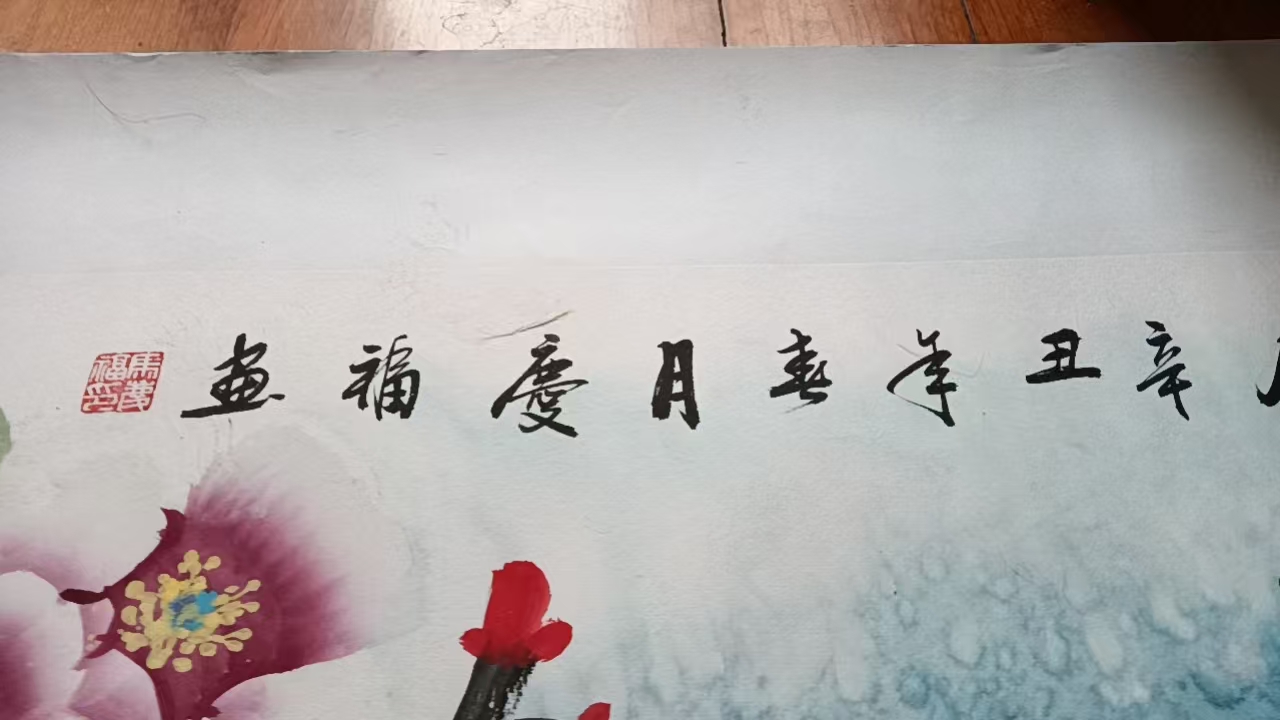 辛丑年春月慶福画
馬慶福印